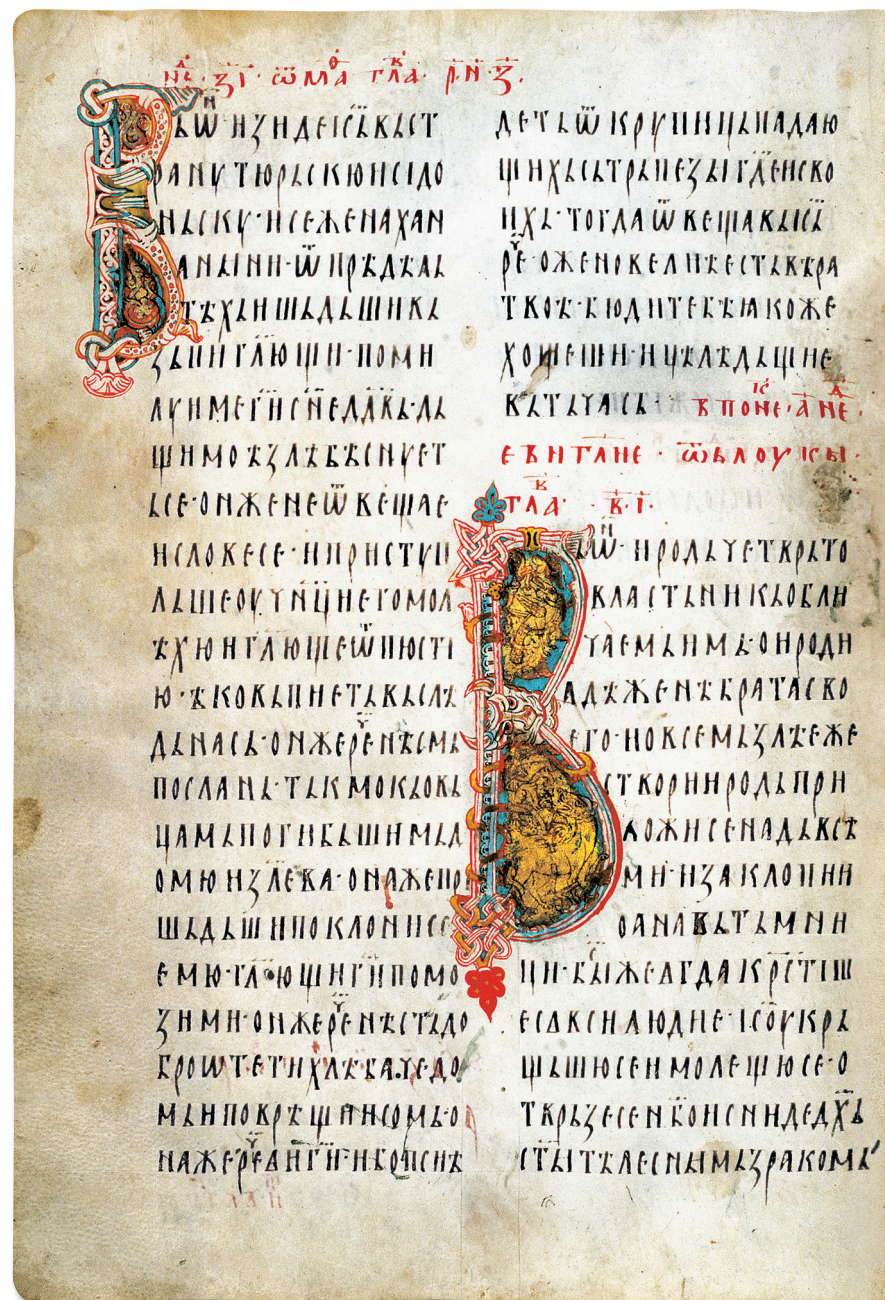 нє · зі · ѿ ма гла · рнз ·
Вѡн изиде іс҃ь въ ст
ранꙋ тюрьскю и сідо
ньскꙋ · и се жена хан
аныни · ѿ прѣдѣль
тѣхь и шьдьши вь
зъпи гл҃ющи · поми
лꙋи ме г҃и с҃не дв҃дъ · дь
щи моѣ злѣ бѣснꙋет
ьсе · он же не ѿвеща е
и словесе · и пристꙋп
льше ѹчн҃ци его мол
ѣхю и гл҃юще ѿпюсті
ю · ѣко въпиеть въ слѣ
дь нась · он же реч нѣсмь
посланъ · тькмо къ овь
цамь погибъшимь д
омю излева · она же при
шьдьши поклони се
емю · гл҃ющи г҃и помо
зи ми · он же реч нѣсть до
бро ѡтети хлѣба чедо
мь и поврѣщи псомь · о
на же реч еи г҃и · ибо пси ѣ
деть ѿ крꙋпиць падаю
щихь сь трьпезы гд҃еи ско
ихь · тогда ѿвеща въ іс҃ь
реч о жено велиѣ есть вѣра
твоѣ · бюди тебѣ ꙗкоже
хощеши · и цѣлѣ дьщи е
въ ть чась · в поне · а не ·
евнгл҃ие · ѿ лоукы ·
гла · в · і ·
Вѡн · иродь четврьто
властьникь обли
чаемь имь · о ироди
адѣ женѣ брата сво
его · и о всемь злѣ еже
створи иродь при
ложи се надь всѣ
ми · и заклопи и
оана вь тьмни
ци · бы же егда крсті ш
е се вси людие · ісо҃у кръ
щьшю се и молещю се · о
твръзе се нб҃о и сниде дх҃ь
ст҃ы тѣлеснымь зракомь